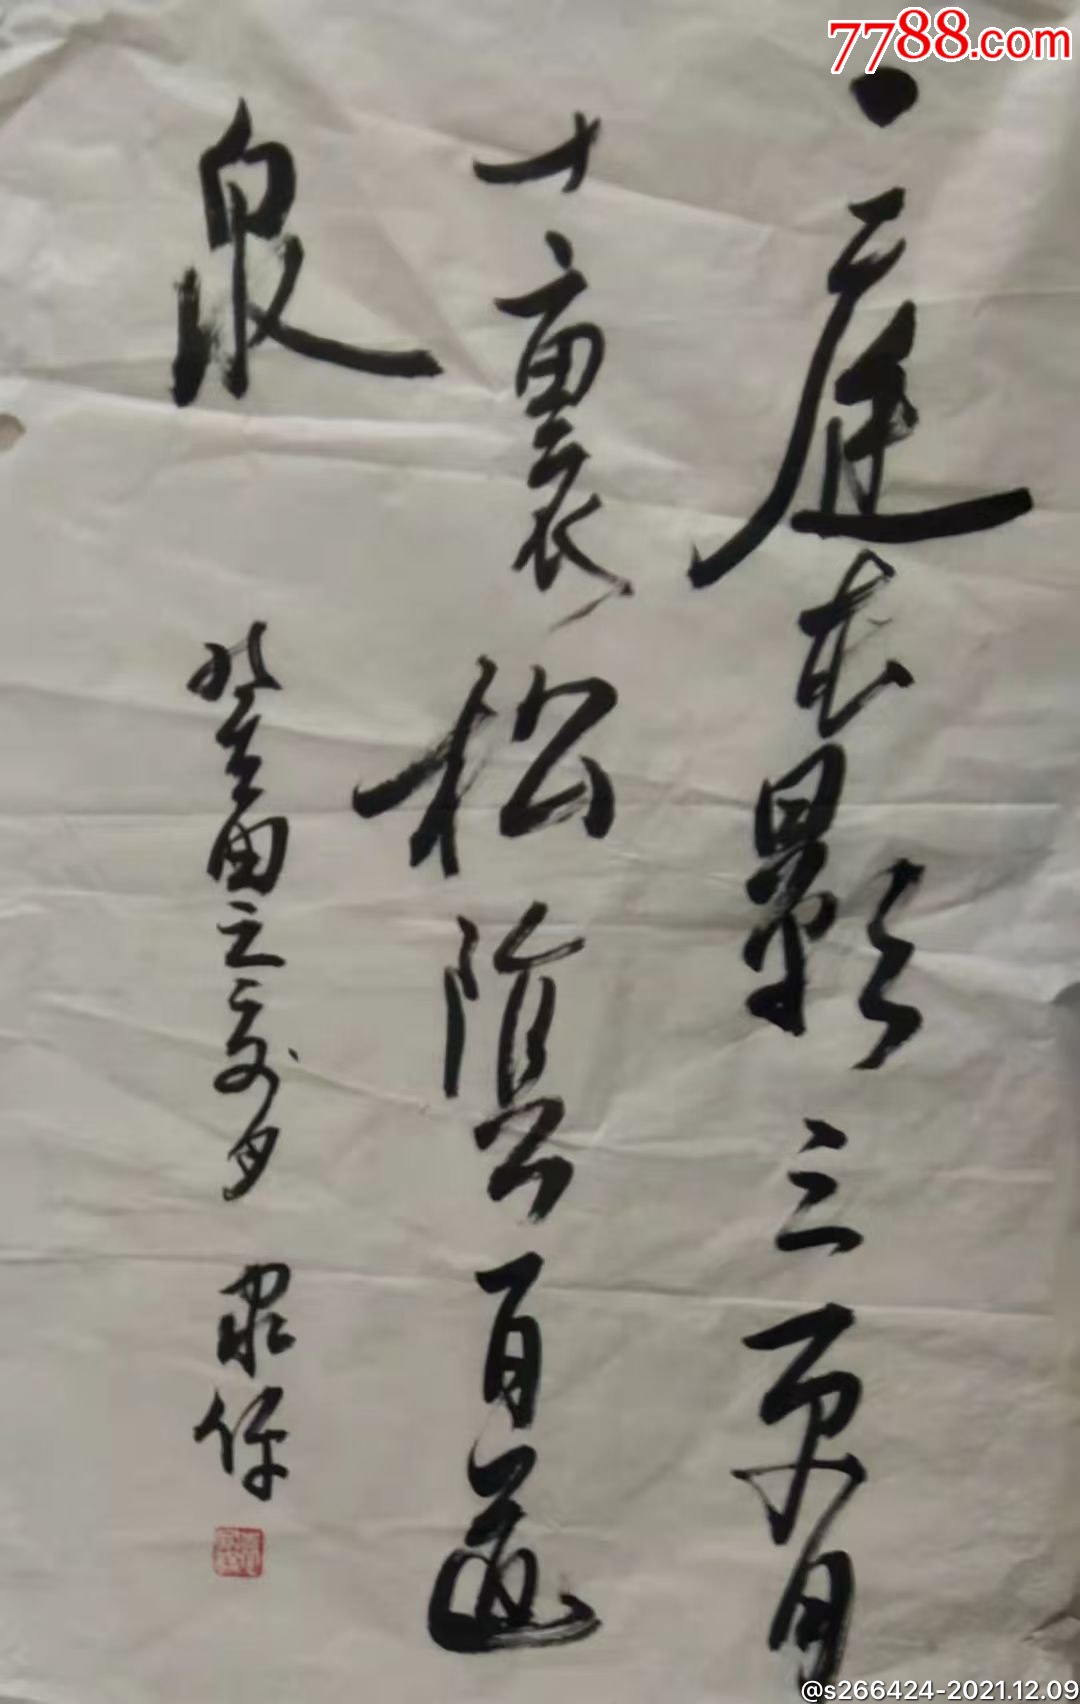 7788.com
一庭花影三更月
十裏松陰百道
泉
癸酉之
@s266424-2021.12.09